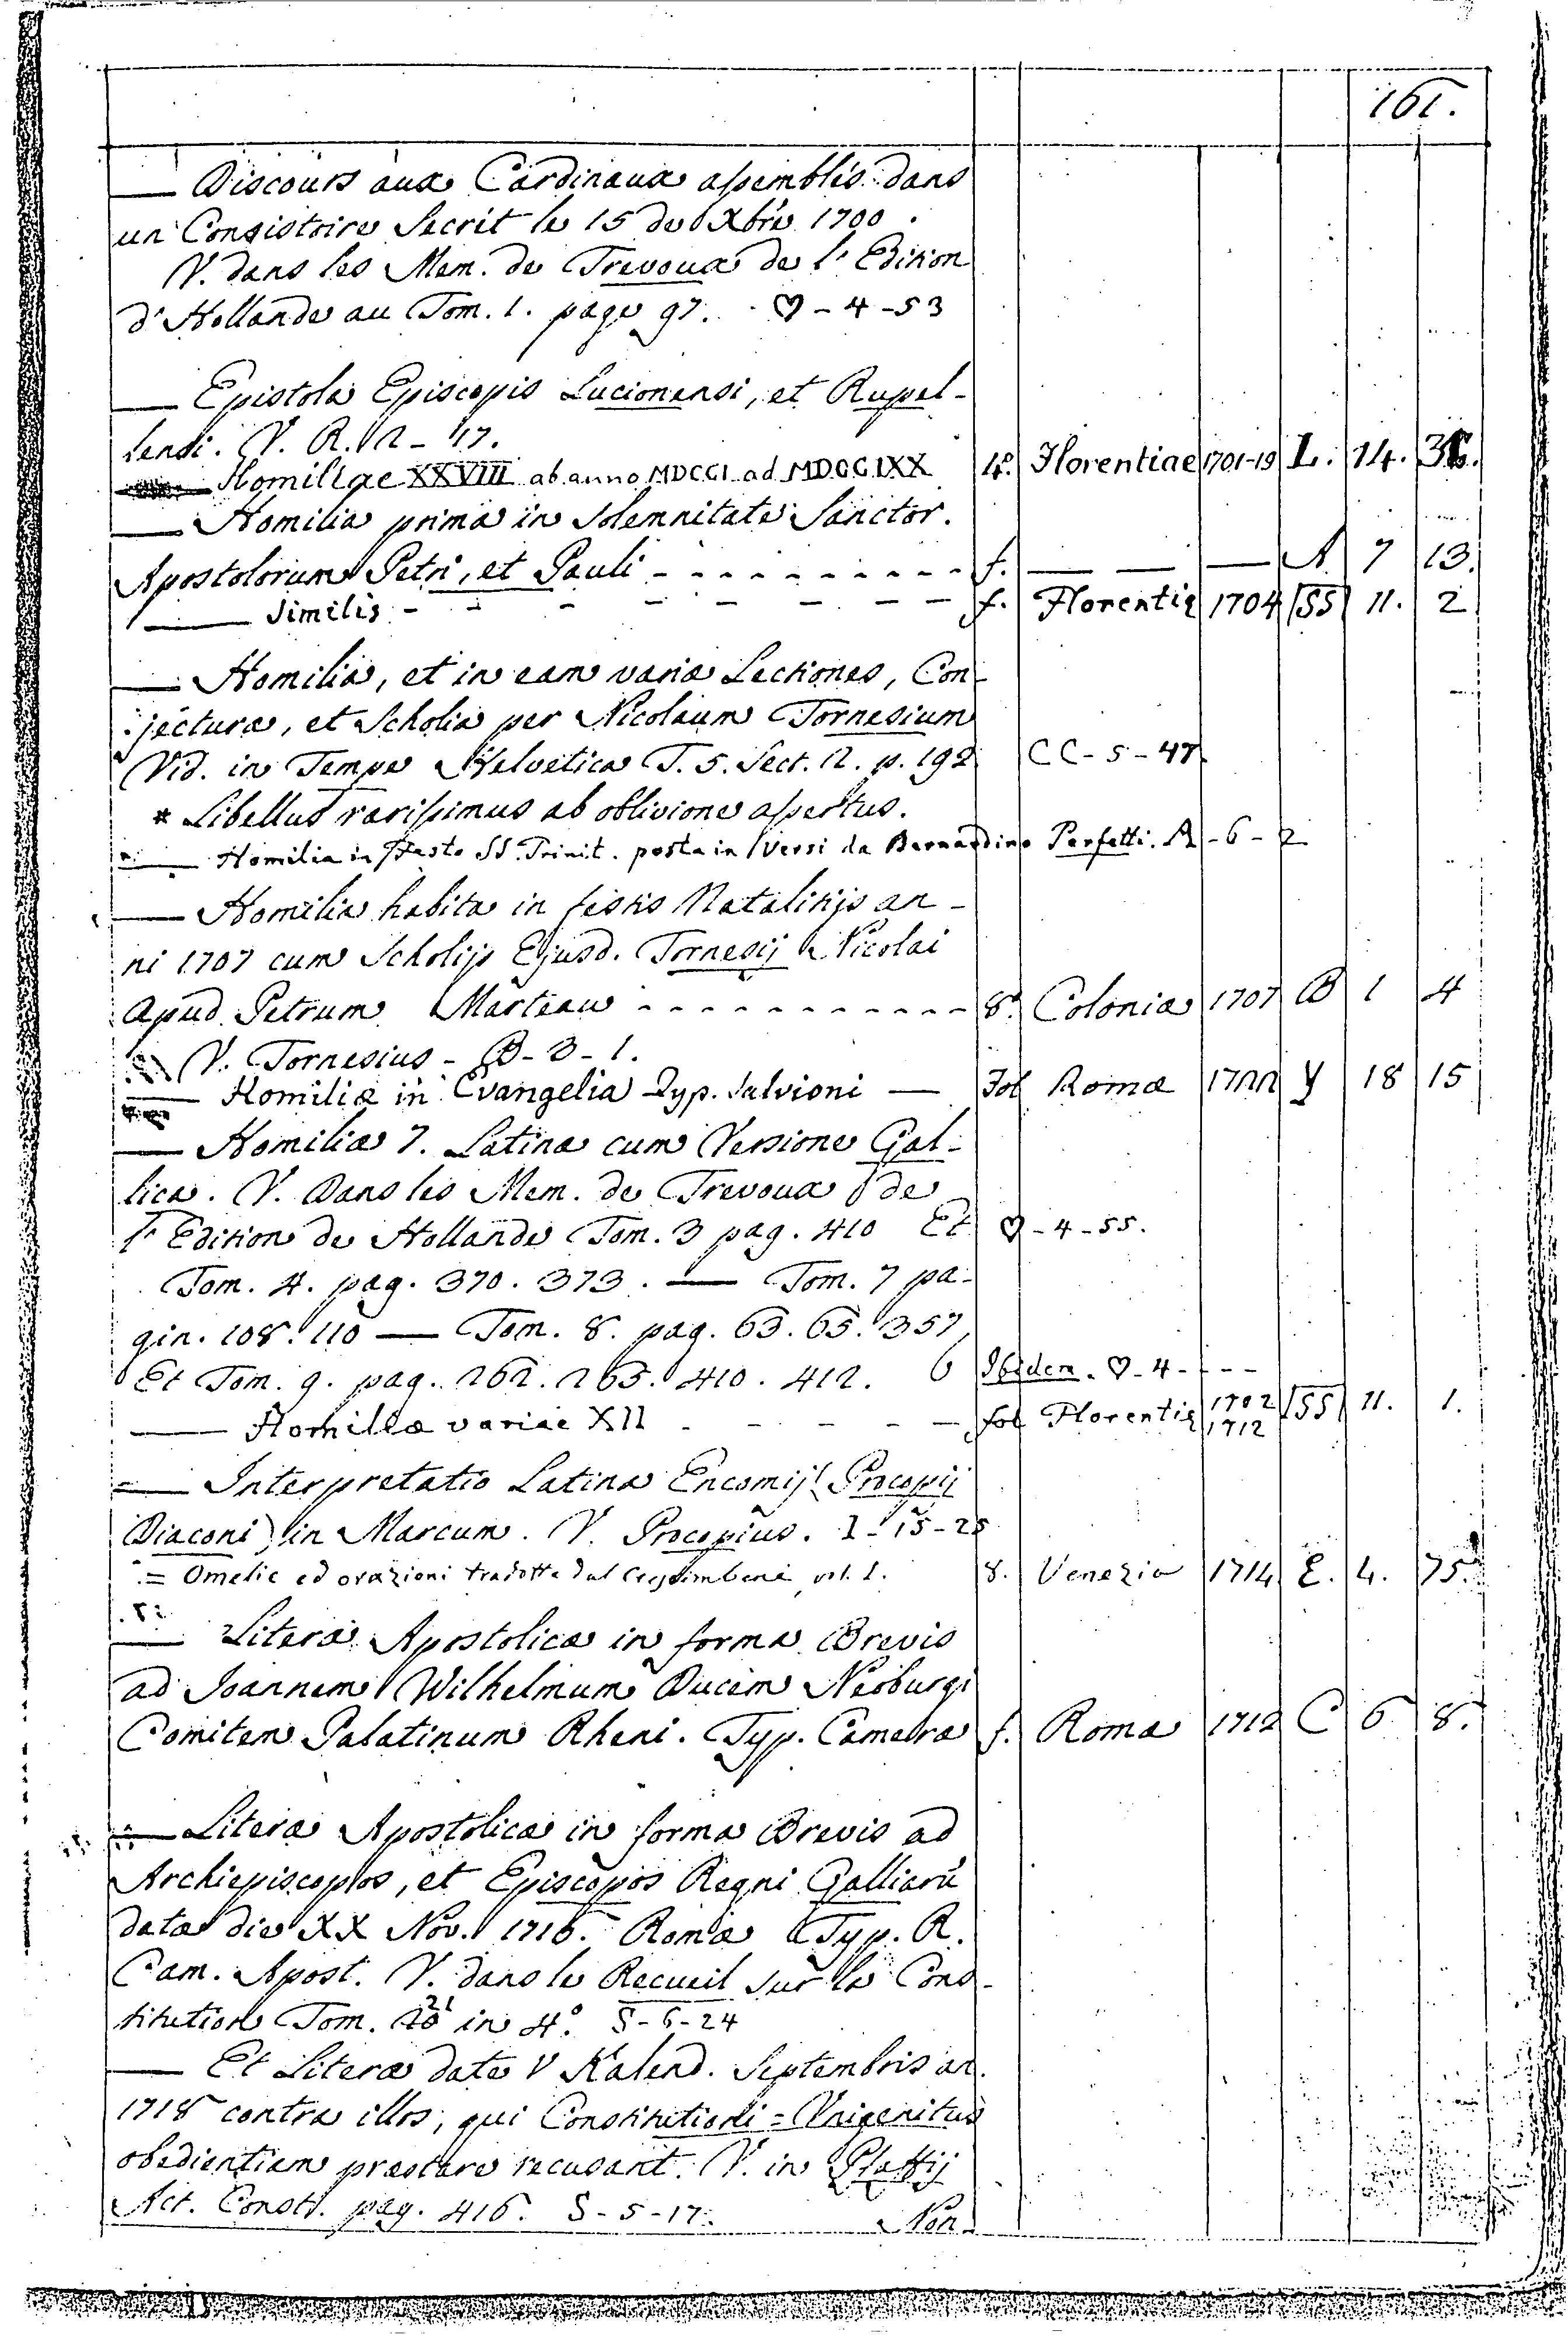 161.
— Discours aux Cardinaux assemblés dans
un Consistoire Secrét le 15 de Xbre 1700.
V. dans les Mem. de Trevoux de l'Edition
d'Hollande au Tom. 1. page 97. ♡-4-53
— Epistola Episcopis Lucionensi, et Rupel-
lensi. V. R. 12-17.
— Homiliae XXVIII ab anno MDCCI ad MDCCIXX 4.º Florentiae 1701-19 L. 14.
— Homilia prima in Solemnitate Sanctor.
Apostolorum Petri, et Pauli - - - - - - - - - f. — — — A 7 13.
— Similis - - - - - - - - f. Florentiæ 1704 SS 11. 2
— Homilia, et in eam variæ Lectiones, Con-
jecturæ, et Scholia per Nicolaum Tornesium
Vid. in Tempe Helvetica T. 5. Sect. 2. p. 192 CC-5-47
* Libellus rarissimus ab oblivione assertus.
— Homilia in Festo SS. Trinit. posta in Versi da Bernardino Perfetti. R-6-2
— Homilia habita in festis Natalitijs an-
ni 1707 cum Scholijs Ejusd. Tornesij Nicolai
apud Petrum Marteau - - - - - - - - - - - 8.º Coloniæ 1707 B 1 4
V. Tornesius - B-3-1.
— Homiliæ in Evangelia Typ. Salvioni — Fol Romæ 1722 Y 18 15
— Homiliæ 7. Latinæ cum Versione Gal-
lica. V. Dans les Mem. de Trevoux de
l'Edition de Hollande Tom. 3 pag. 410 Et ♡-4-55.
Tom. 4. pag. 370. 373. — Tom. 7 pa-
gin. 108. 110 — Tom. 8. pag. 63. 65. 357
Et Tom. 9. pag. 262. 265. 410. 412. Ibidem. ♡-4- - - -
— Homiliæ variae XII - - - - - fol Florentiæ 1702 1712 SS 11. 1.
— Interpretatio Latina Encomij (Procopij
Diaconi) in Marcum. V. Procopius. I-15-25
= Omelie ed orazioni tradotte dal Crescimbeni vol. 1. 8. Venezia 1714 E. 4. 75.
— Literæ Apostolicæ in forma Brevis
ad Joannem Wilhelmum Ducem Neoburgi
Comitem Palatinum Rheni. Typ. Cameræ f. Romæ 1712 C 6 8.
— Literæ Apostolicæ in forma Brevis ad
Archiepiscopos, et Episcopos Regni Galliarū
datæ die XX Nov. 1716. Romæ Typ. R.
Cam. Apost. V. dans le Recueil sur la Cons-
titution Tom. 21 in 4.º S-6-24
— Et Literæ datæ V Kalend. Septembris an.
1718 contra illos, qui Constitutioni = Unigenitus
obedientiam præstare recusant. V. in Pfaffij
Act. Constit. pag. 416. S-5-17.
Non